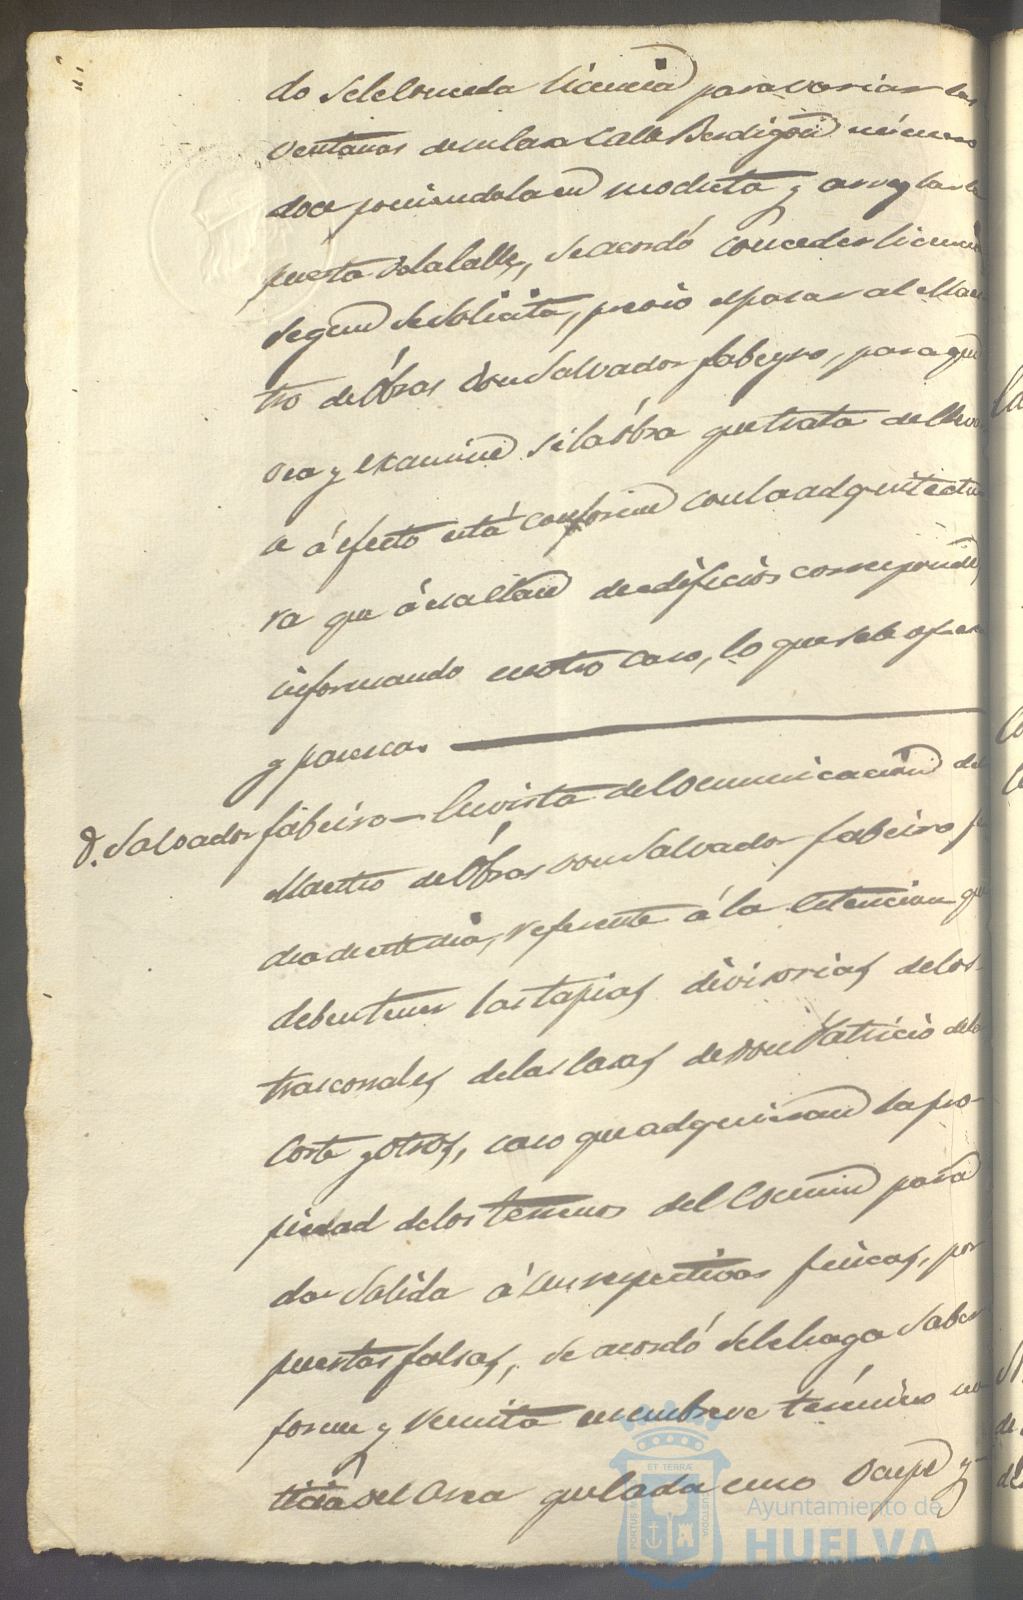 do sele conceda licencia para variar las
ventanas de su casa calle Berdigon número
doce poniendola en modesta y arreglar la
puerta de la calle, se acordó conceder licencia
segun se solicita, previo el pasar al Maes
tro de Obras don Salvador Fabeyro, para que
vea y examine si la obra que trata de llevar
a á efecto está conforme con la adquitectu
ra que á esa clase de edificios corresponde,
informando en otro caso, lo que se le ofresca
y paresca.
D. Salvador Fabeiro = En vista de comunicación del
Maestro de Obras don Salvador Fabeiro fe
cha de este dia, referente á la estencion que
deben tener las tapias divisorias de los
trascorrales de las casas de don Patricio de la
Corte y otros, caso que adquieran la pro
piedad de los terrenos del Comun para
dar salida á sus respectivas fincas, por
puertas falsas, se acordó se le haga saber
forme y remita en un breve término no
ticia del Area que cada uno ocupe y
ET TERRAE
PORTUS MARIS
CUSTODIA
Ayuntamiento de
HUELVA